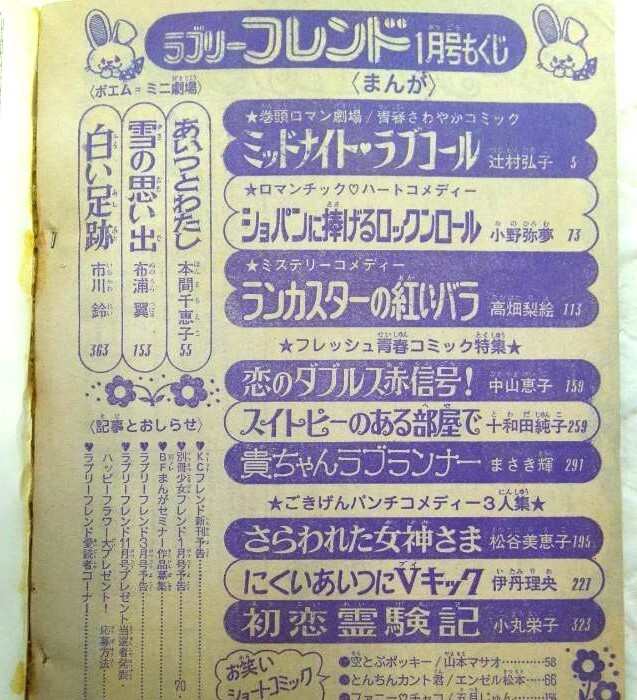 ラブリーフレンド1月号もくじ
〈まんが〉
★巻頭ロマン劇場/青春さわやかコミック
ミッドナイト♥ラブコール 辻村弘子 5
★ロマンチック♡ハートコメディー
ショパンに捧げるロックンロール 小野弥夢 73
★ミステリーコメディー
ランカスターの紅いバラ 高畑梨絵 113
★フレッシュ青春コミック特集★
恋のダブルス赤信号! 中山恵子 159
スイトピーのある部屋で 十和田純子 259
貴ちゃんラブランナー まさき輝 291
★ごきげんパンチコメディー3人集★
さらわれた女神さま 松谷美恵子 195
にくいあいつにVキック 伊丹理央 227
初恋霊験記 小丸栄子 323
お笑い
ショートコミック
●空とぶポッキー/山本マサオ 58
●とんちんカント君/エンゼル松本 66
〈ポエム=ミニ劇場〉
あいつとわたし 本間千恵子 55
雪の思い出 布浦翼 153
白い足跡 市川鈴 363
〈記事とおしらせ〉
♥KCフレンド新刊予告
♥別冊少女フレンド1月号予告 70
♥BFまんがセミナー作品募集
♥ラブリーフレンド3月号予告
♥ラブリーフレンド11月号プレゼント当選者発表
ハッピーフラワー大プレゼント! 応募方法
♥ラブリーフレンド愛読者コーナー!